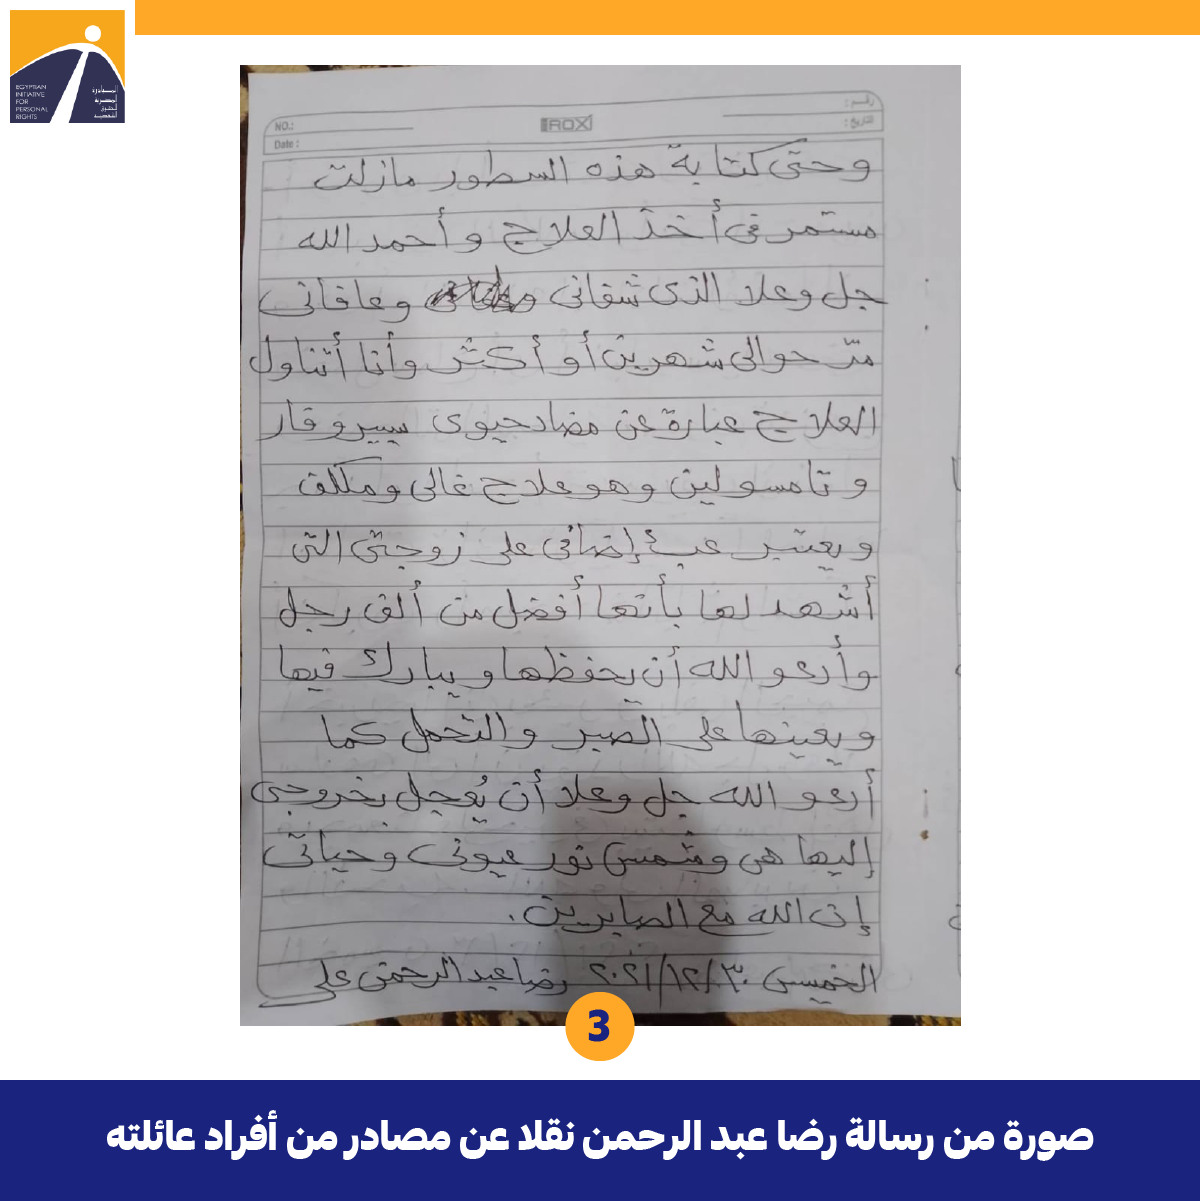 EGYPTIAN
INITIATIVE
FOR
PERSONAL
RIGHTS
المبادرة
المصرية
للحقوق
الشخصية
NO.:
Date :
ROX
رقم :
التاريخ :
وحتى كتابة هذه السطور مازلت
مستمر فى أخذ العلاج وأحمد الله
جل وعلا الذى شفانى وعافانى
مرّ حوالى شهرين أو أكثر وأنا أتناول
العلاج عبارة عن مضاد حيوى سيبروفار
وتامسولين وهو علاج غالى ومكلف
ويعتبر عبء إضافى على زوجتى التى
أشهد لها بأنها أفضل من ألف رجل
وأدعو الله أن يحفظها ويبارك فيها
ويعينها على الصبر والتحمل كما
أدعو الله جل وعلا أن يُعجل بخروجى
إليها هى وشمس نور عيونى وحياتى
إن الله مع الصابرين.
الخميس ٣٠/١٢/٢٠٢١ رضا عبد الرحمن على
3
صورة من رسالة رضا عبد الرحمن نقلا عن مصادر من أفراد عائلته